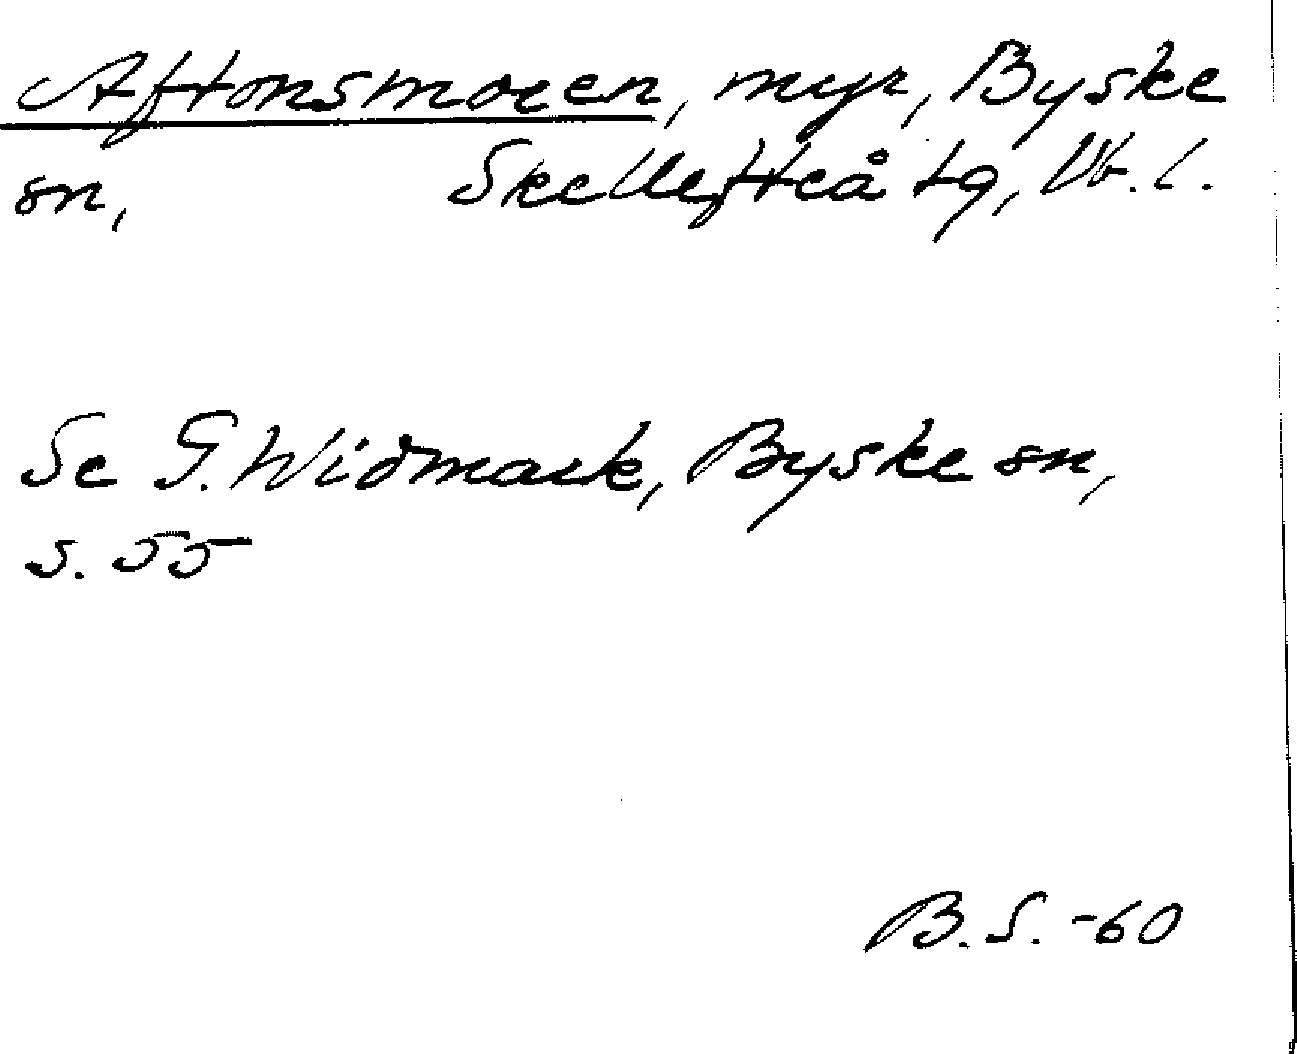 Aftonsmoren, myr, Byske
sn, Skellefteå tg, Vb. l.
Se G. Widmark, Byske sn,
s. 55
B. S. -60